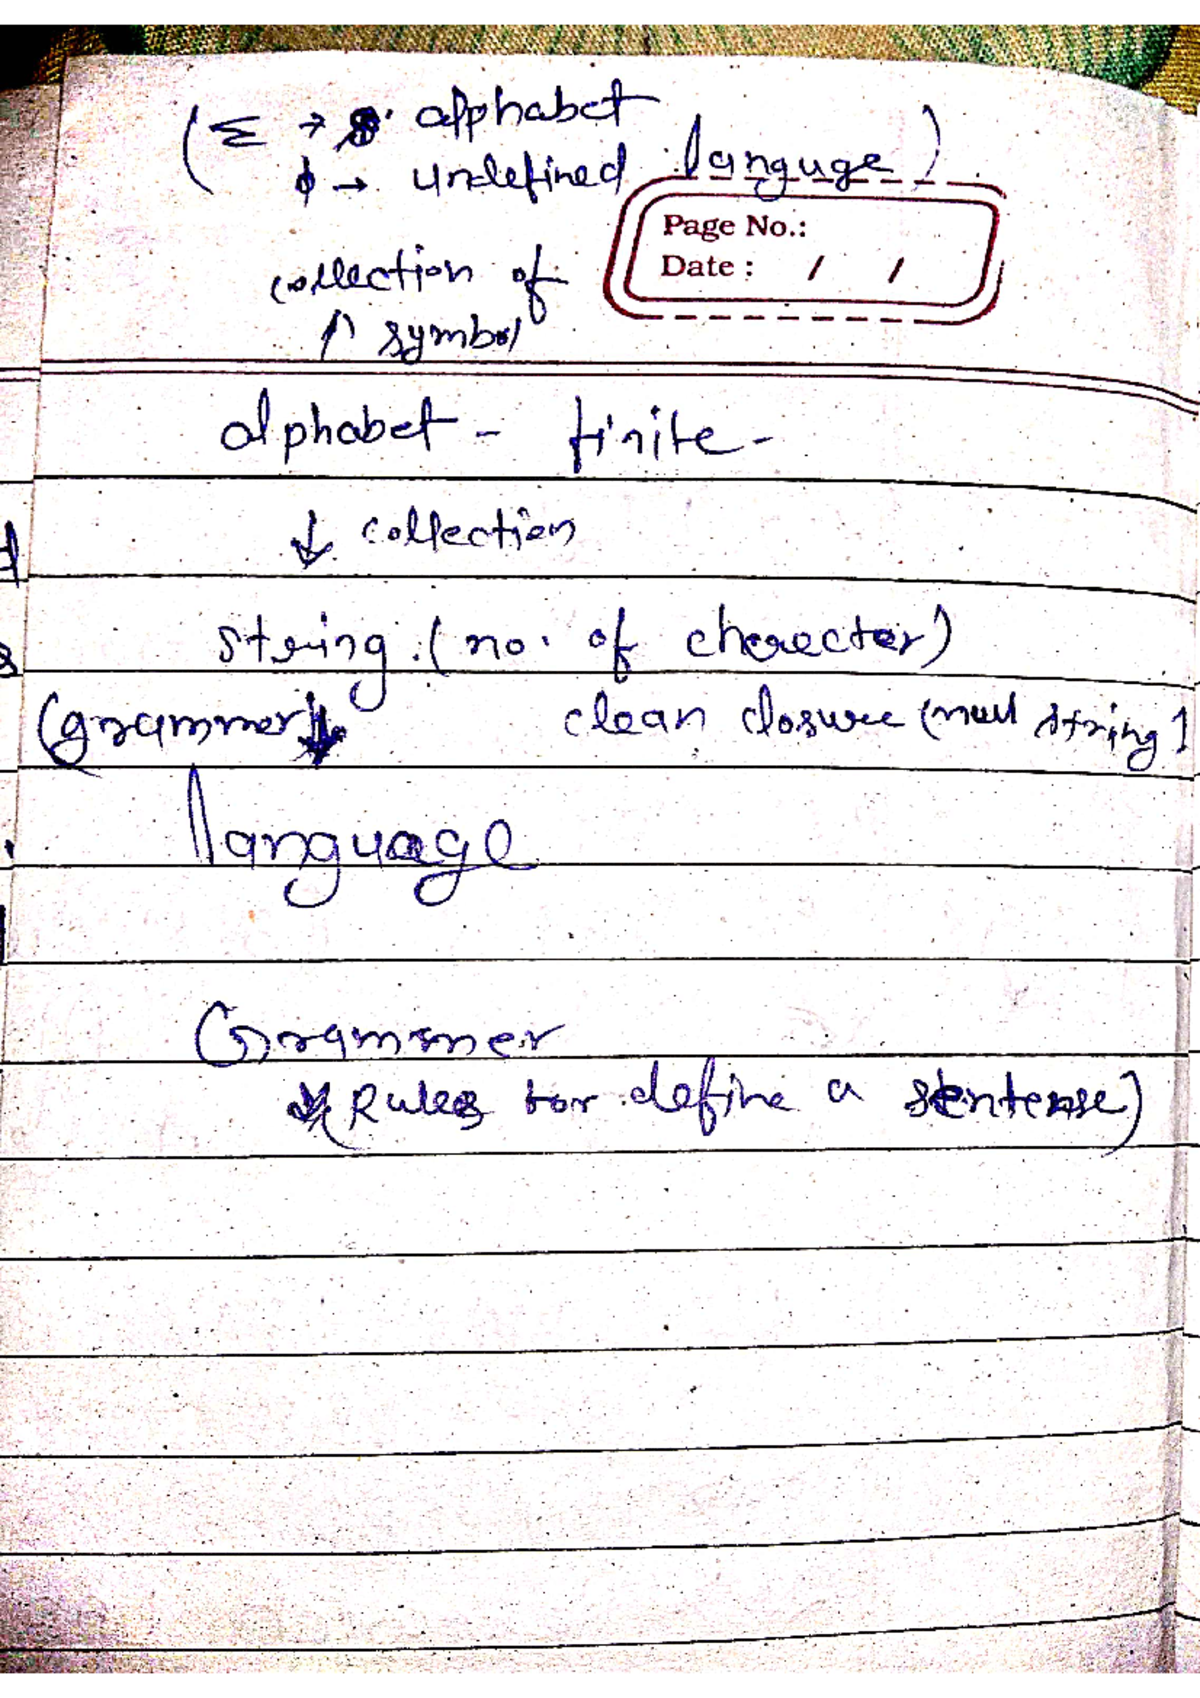 (Σ → alphabet
ϕ → undefined languge)
Page No.:
Date : / /
collection of
↑ symbol
alphabet - finite -
↓ collection
string. (no. of cherecter)
(grammer) ↓ clean closure (null string)
language
Grammer
(Rules for define a sentense)